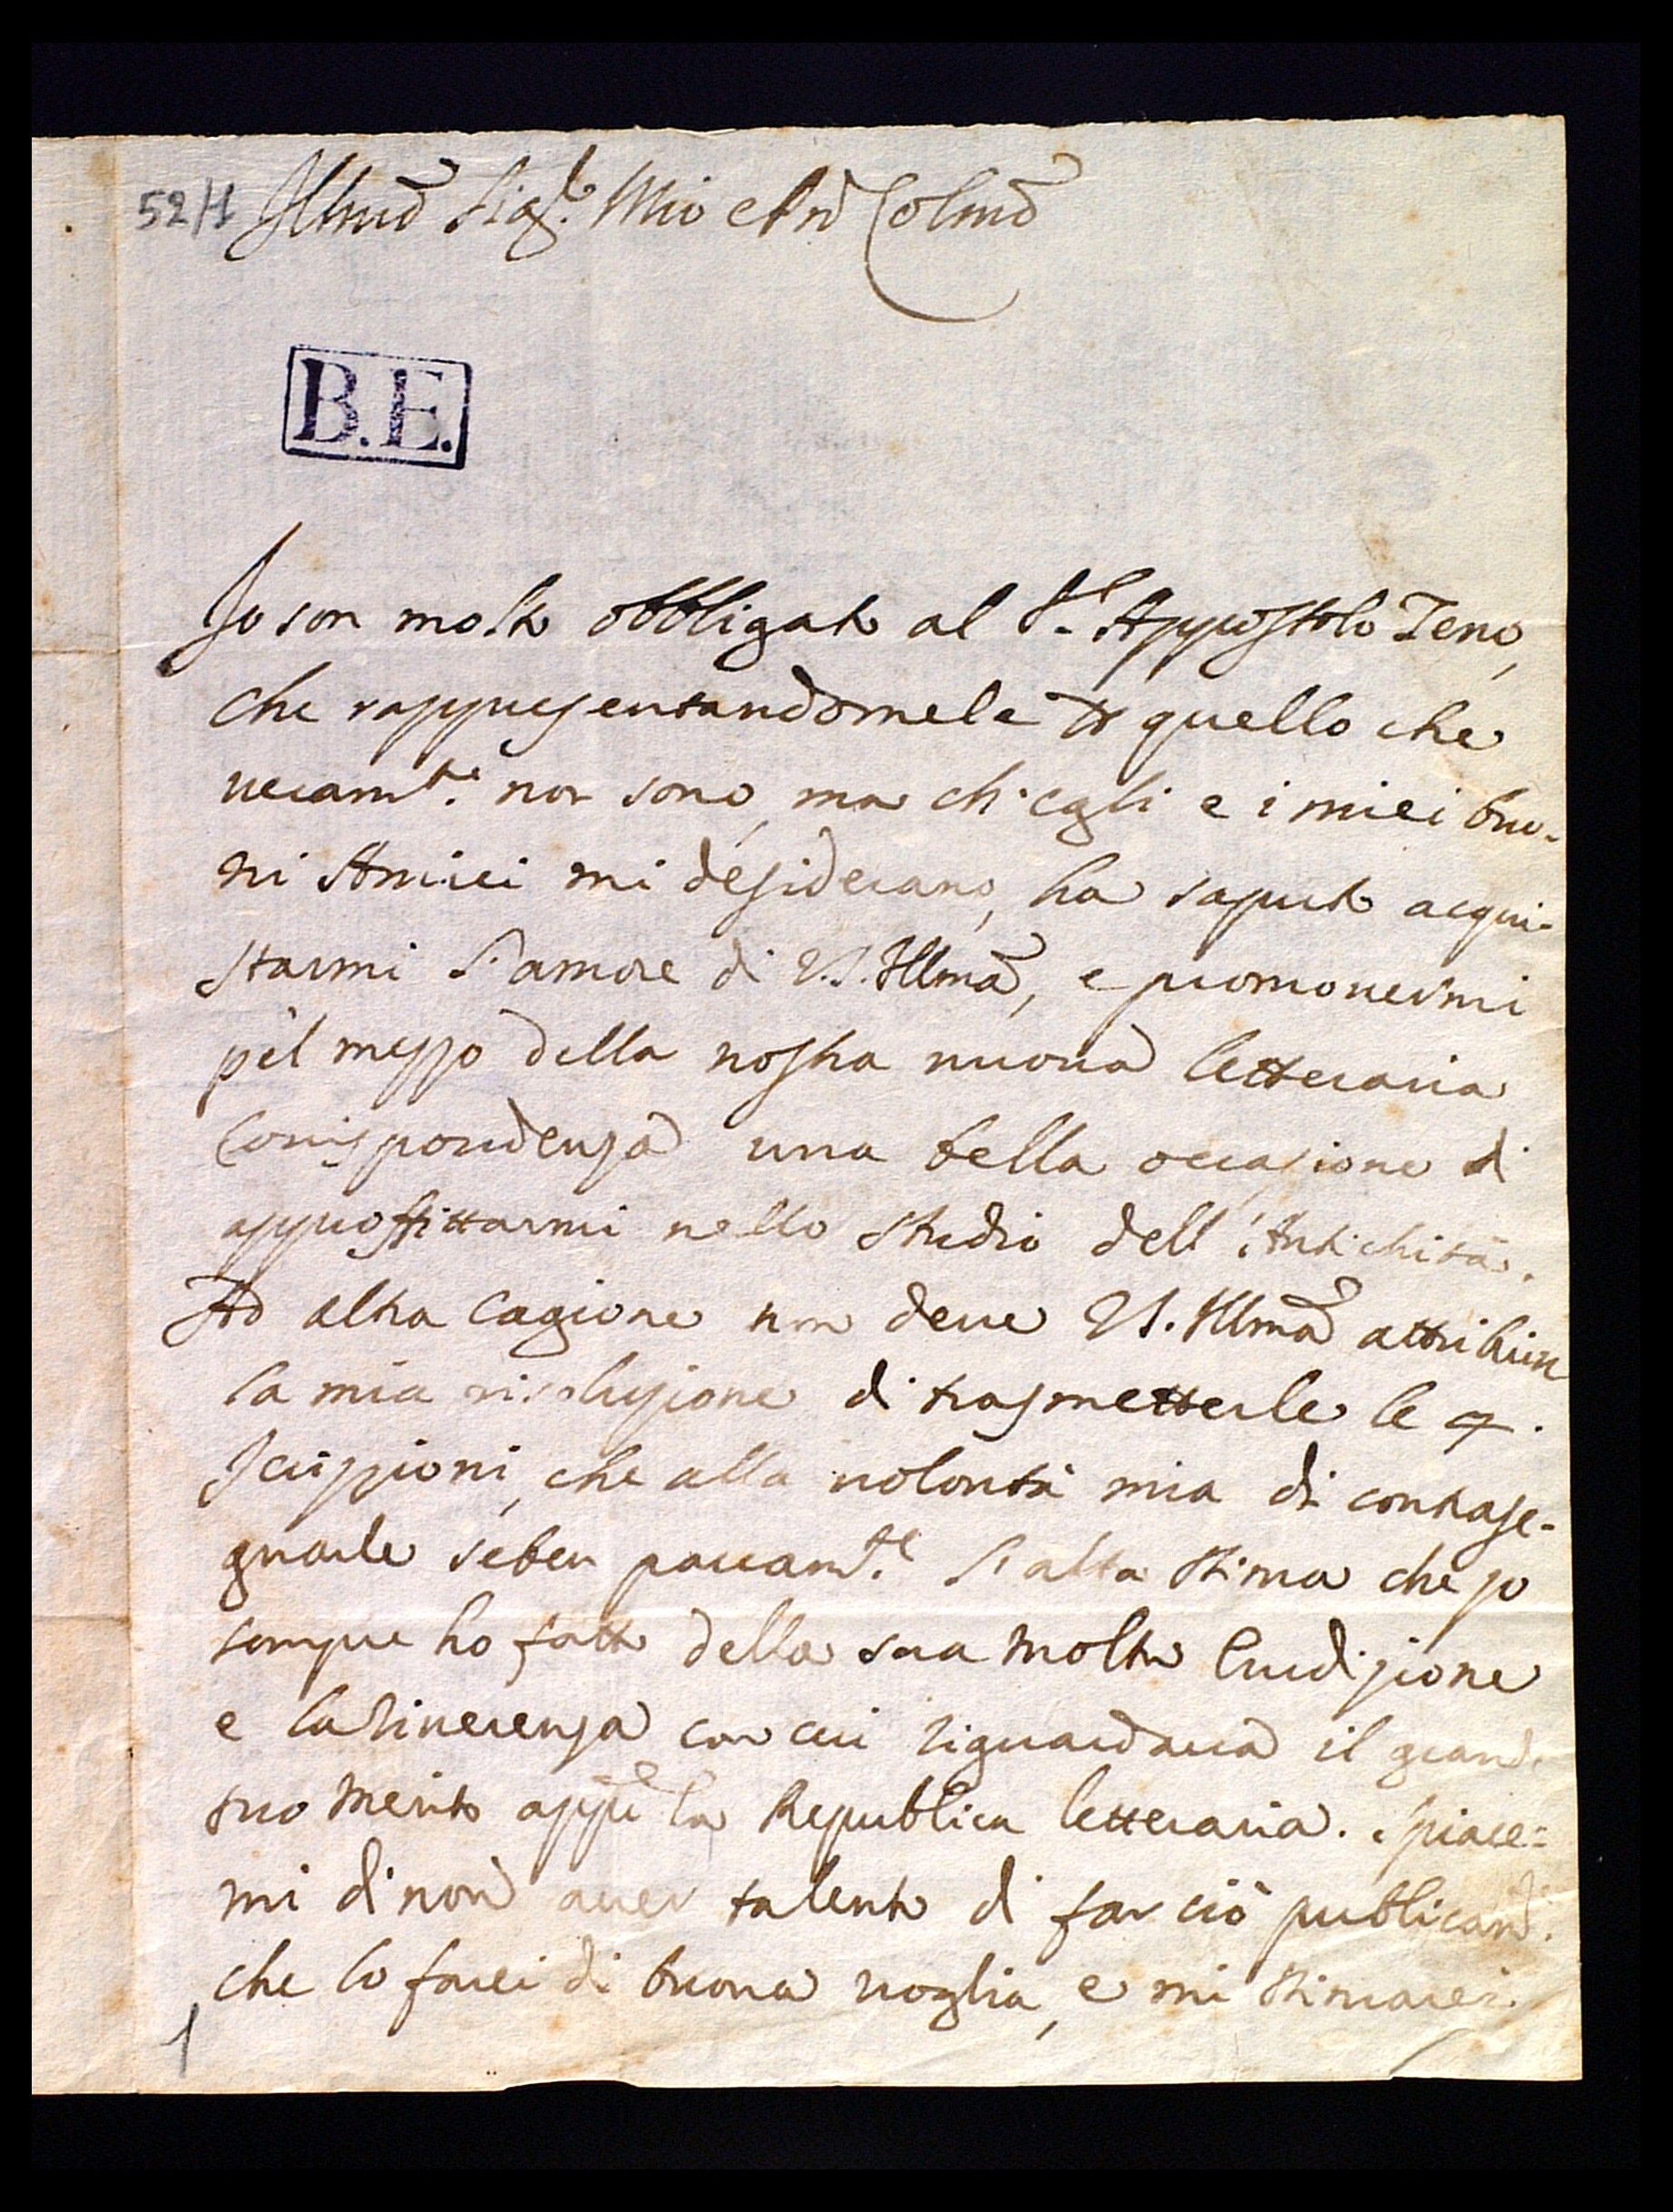 52/1 Illmo Sigr. Mio e Prõ Colmo
B.E.
Io son molto obbligato al Sr. Appostolo Zeno,
che rappresentandomele  quello che
veramte. non sono, ma ch'egli e i miei buo-
ni Amici mi desiderano, ha saputo acqui-
starmi l'amore di V.S. Illma, e promovermi
pel mezzo della nostra nuova letteraria
Corrispondenza una bella occasione di
approffittarmi nello studio dell'Antichità.
Ad altra cagione non deve VS. Illma attribuire
la mia risoluzione di trasmetterle le 4.
Scrizzioni, che alla volontà mia di contrase-
gnarle seben parcamte. l'alta stima che io
sempre ho fatto della sua molta Erudizione
e la riverenza con cui riguardava il grande
suo merito appo la Republica letteraria. Spiace-
mi di non aver talento di far ciò publicamte.
che lo farei di buona voglia, e mi stimarei
1